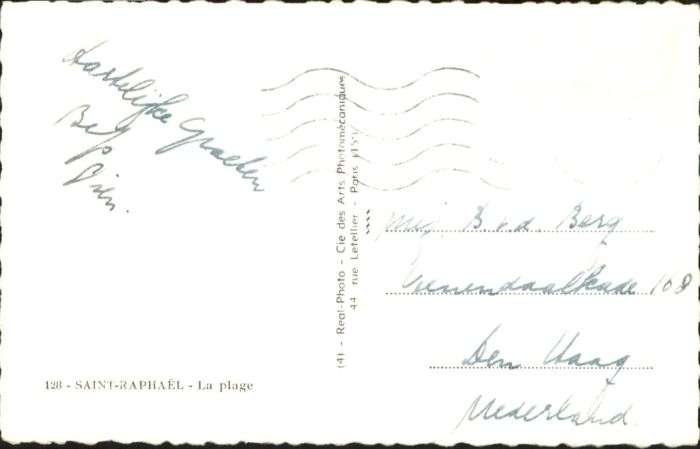 Hartelijke Groeten
128 - SAINT-RAPHAËL - La plage
(4) - Real-Photo - Cie des Arts Photomécaniques
44, rue Letellier - Paris (15e)
mej. B. v. d. Berg
108
Den Haag
Nederland.